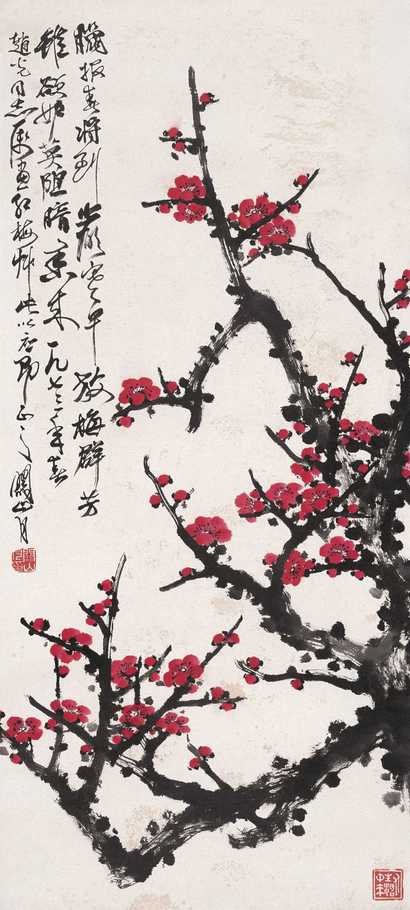 臘報春將到嚴寒早放梅群芳
雖欲妒莫阻暗香來一九七三年春
趙光同志屬畫紅梅此以應即正之關山月